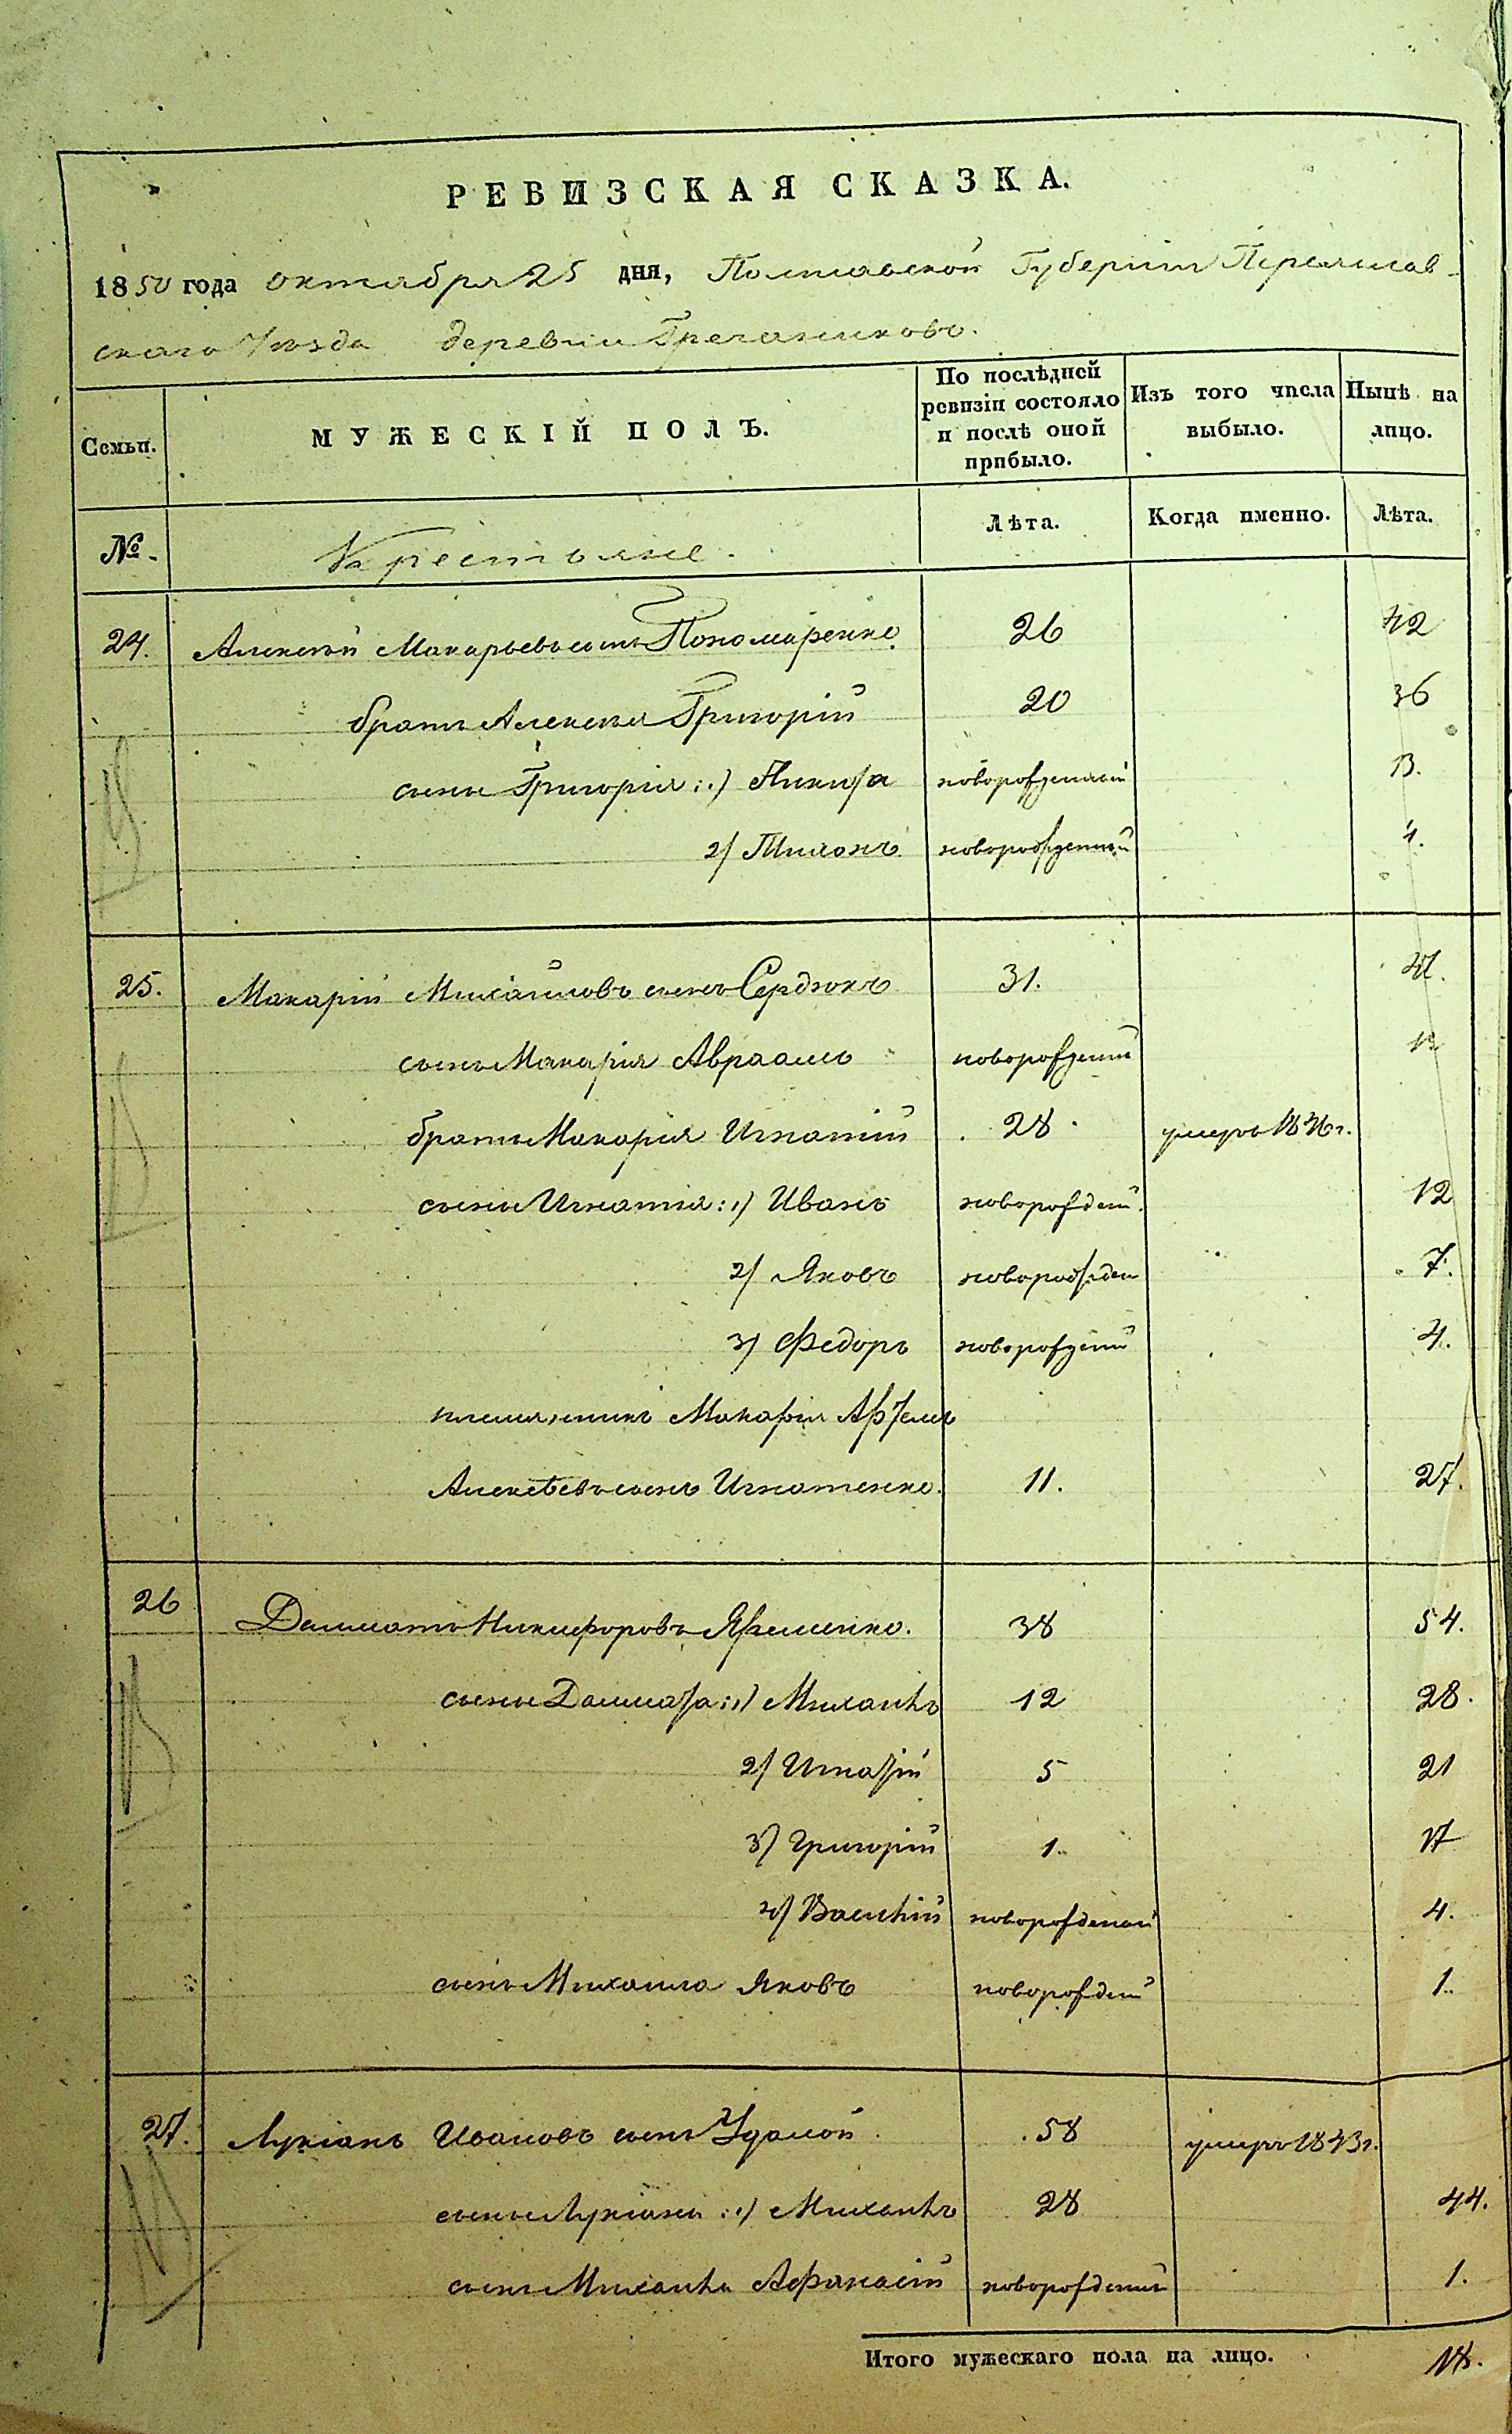 РЕВИЗСКАЯ СКАЗКА.
1850 года октября 25 дня, Полтавской Губернии Переяслав-
скаго Уезда деревни Гречаниковъ.
Семьи. МУЖЕСКІЙ ПОЛЪ. По послѣдней ревизіи состояло и послѣ оной прибыло. Изъ того числа выбыло. Нынѣ на лицо.
№. Крестьяне. Лѣта. Когда именно. Лѣта.
24. Алексей Макарьевъ сынъ Пономаренко. 26 42
братъ Алексея Григорій 20 36
сыны Григорія: 1) Никита новорожденный 13.
2) Тимонъ новорожденный 4.
25. Макарій Михайловъ сынъ Сердюкъ 31. 47.
сынъ Макарія Авраамъ новорожденный
братъ Макарія Игнатій 28. умеръ 1846 г.
сыны Игнатія: 1) Иванъ новорожден. 12
2) Яковъ новорожден 7.
3) Федоръ новорожденный 4.
племянникъ Макарія Артемъ
Алексѣевъ сынъ Игнатенко. 11. 27.
26 Далматъ Никифоровъ Яременко. 38 54.
сыны Далмата: 1) Михаилъ 12 28.
2) Игнатій 5 21
3) Григорій 1. 17
4) Василій новорожденный 4.
сынъ Михаила Яковъ новорожден 1.
27. Лукіанъ Ивановъ сынъ Удалой 58 умеръ 1843 г.
сыны Лукіана: 1) Михаилъ 28 44.
сынъ Михаила Афанасій новорожденный 1.
Итого мужескаго пола на лицо. 18.